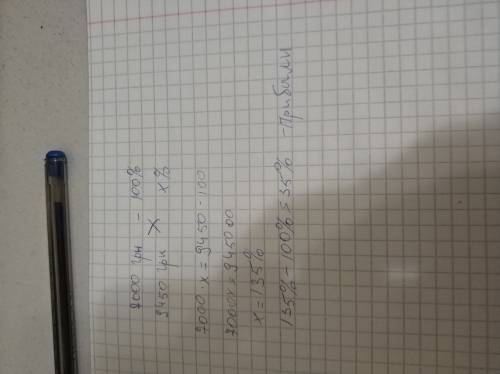 7000 грн - 100%
9450 грн X x%
7000 · x = 9450 · 100
7000x = 945000
x = 135%
135% - 100% = 35% - Прибыли